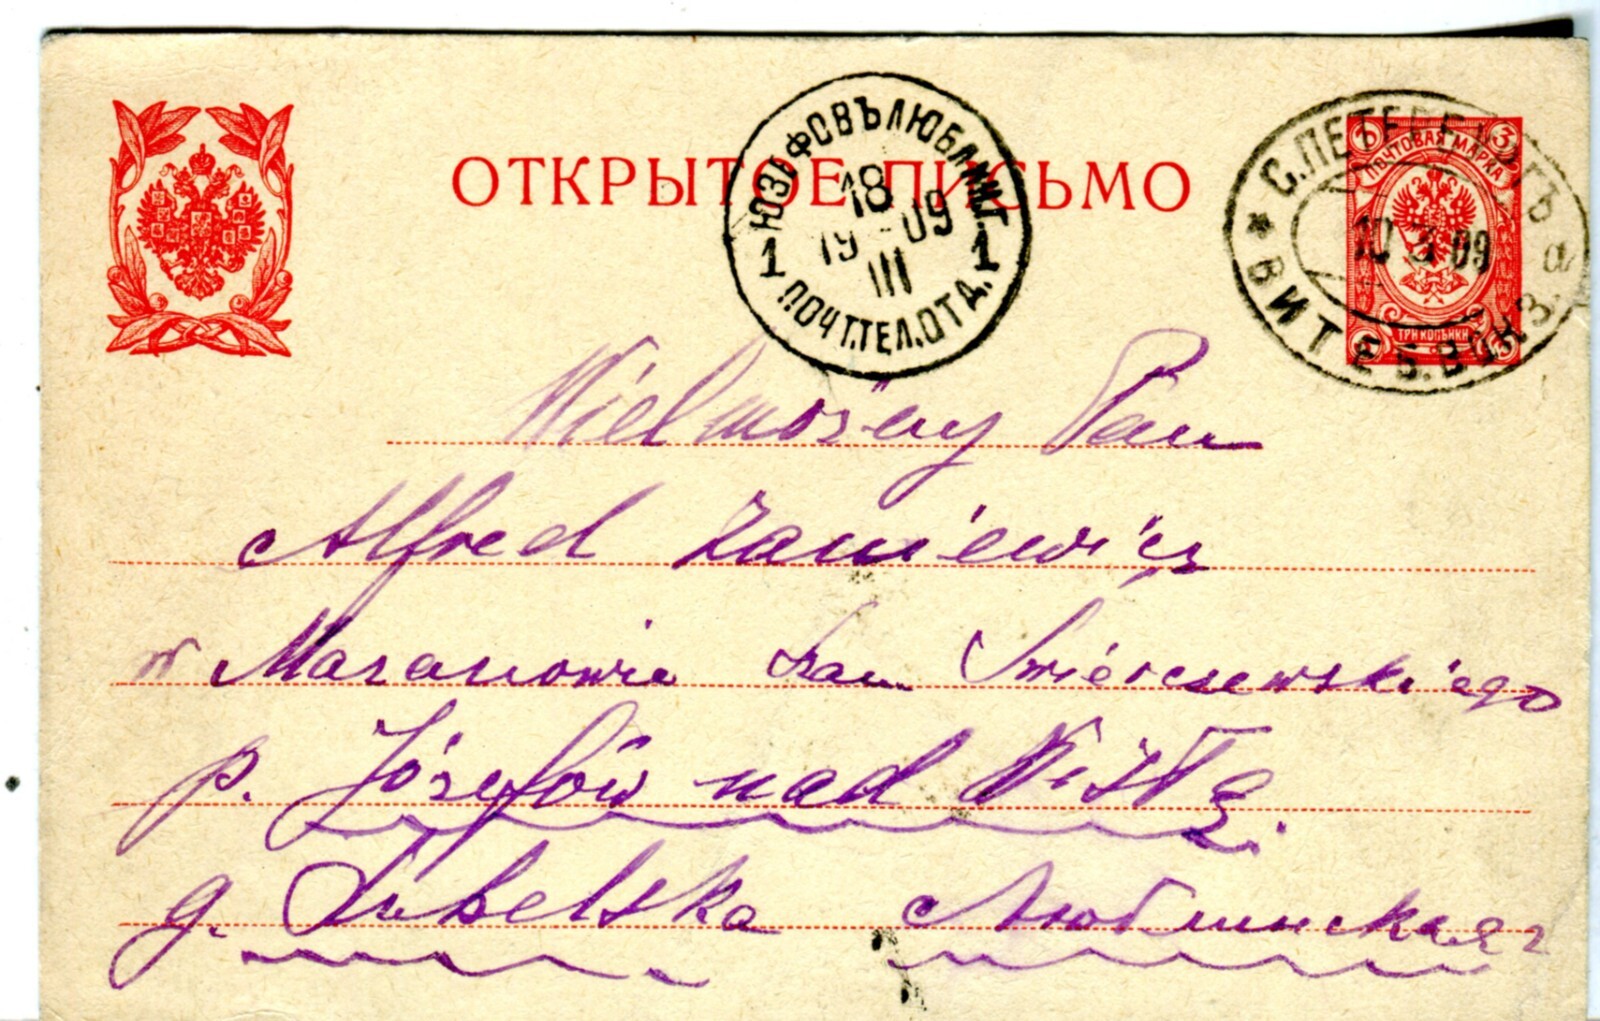 ОТКРЫТОЕ ПИСЬМО
ЮЗЕФОВЪ ЛЮБЛИН.Г.
18
19 - 09
III
1 1
ПОЧТ.ТЕЛ.ОТД.
С.ПЕТЕРБУРГЪ
10 3 09
а
* ВИТЕБ.ВОКЗ
ПОЧТОВАЯ МАРКА
3 3
ТРИ КОПѢЙКИ
3 3
Wielmożny Pan
Alfred Zaniewicz
w Maranowie Pan Swierczewskiego
p. Józefów nad Wisłą.
g. Lubelska Люблинская г